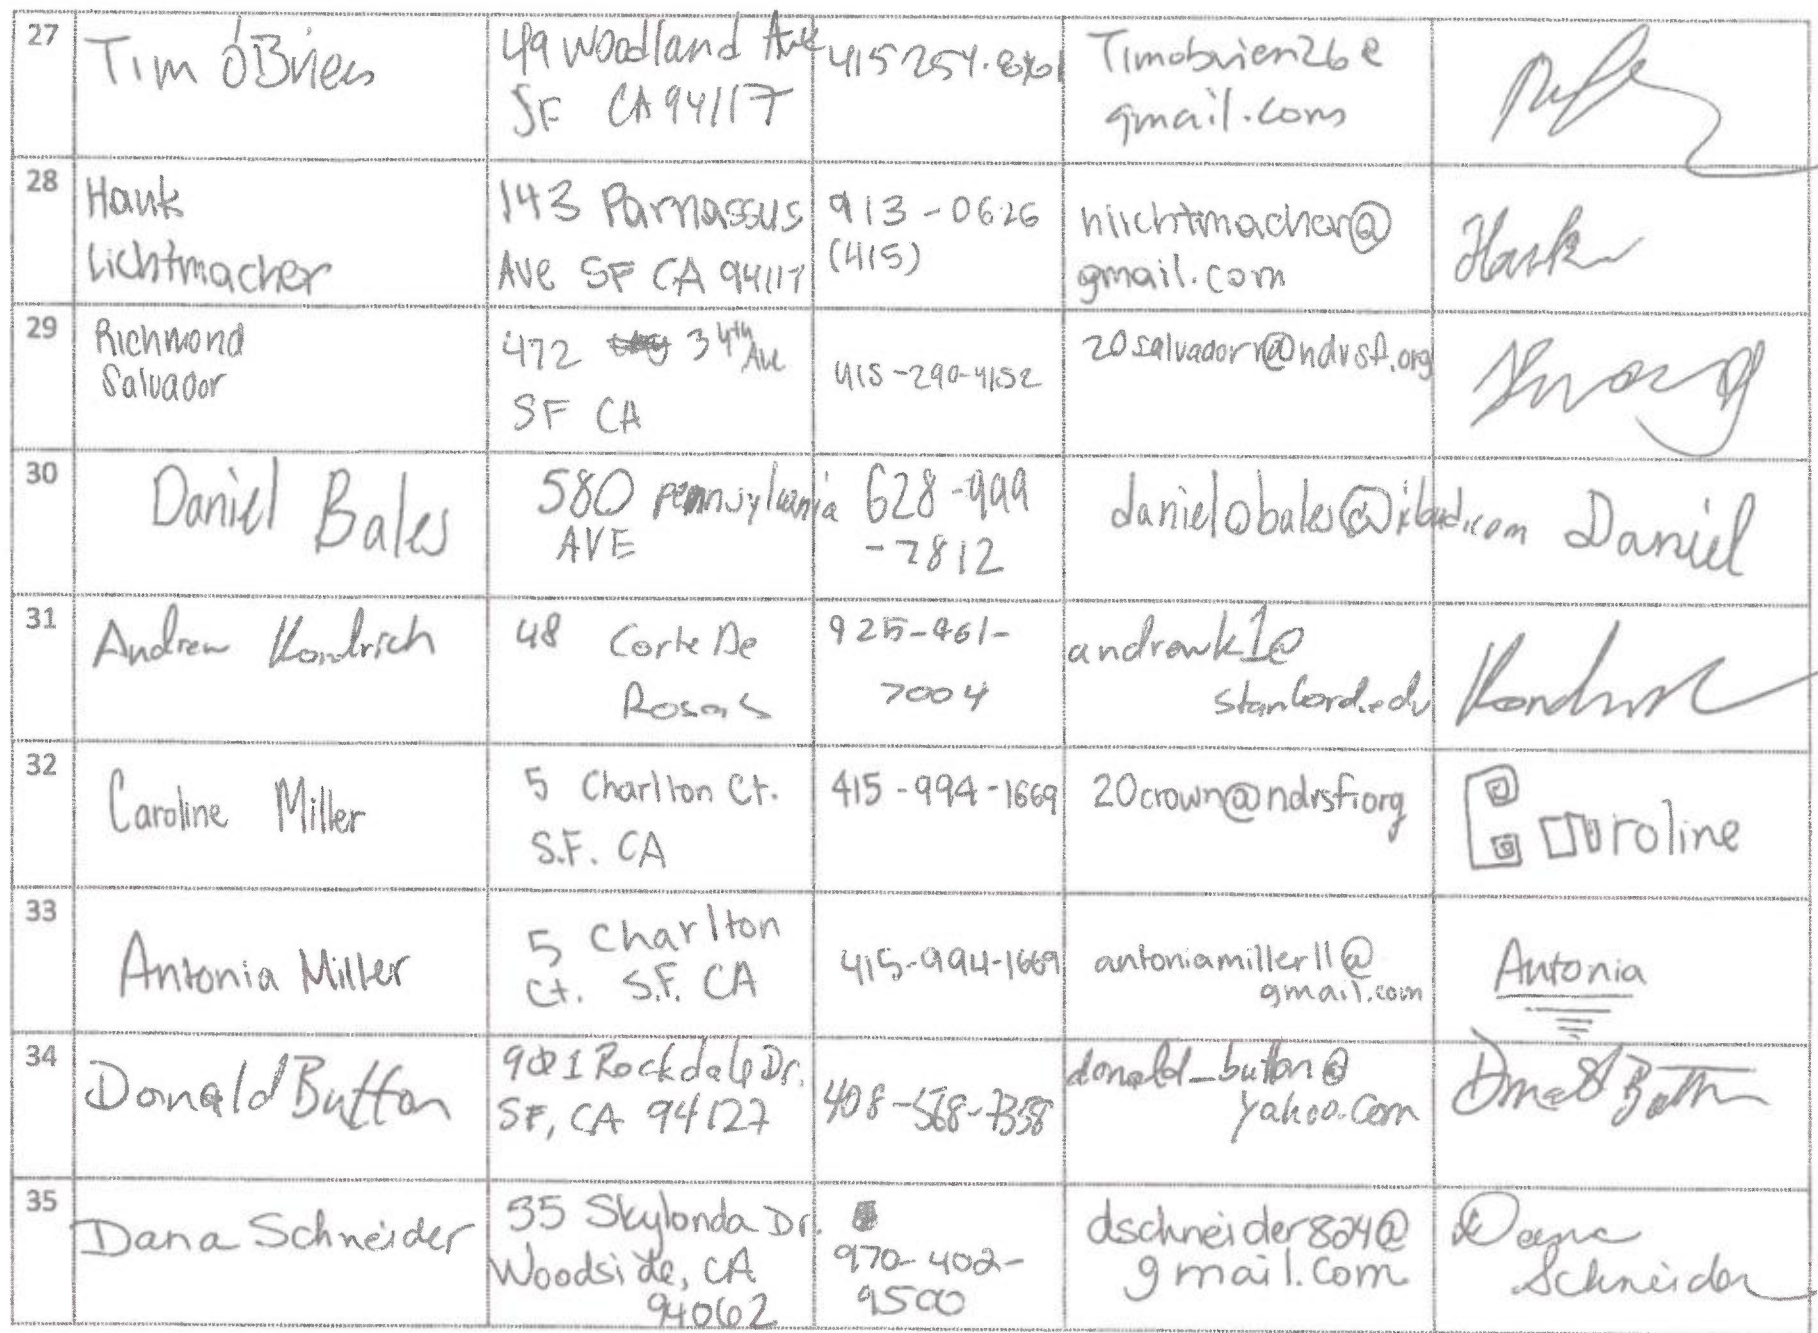 27
Tim O'Brien
49 Woodland Ave
SF CA 94117
415 254.
Timobrien26@
gmail.com
28
Hank
Lichtmacher
143 Parnassus
Ave SF CA 94117
913-0626
(415)
hlichtmacher@
gmail.com
Hank
29
Richmond
Salvador
472 34th Ave
SF CA
415-290-4152
20salvadorr@ndvsf.org
30
Daniel Bales
580 Pennsylvania
AVE
628-999
-7812
danielobales@icloud.com
Daniel
31
Andrew Kondrich
48 Corte De
Rosas
925-961-
7004
andrewk1@
stanford.edu
Kondrich
32
Caroline Miller
5 Charlton Ct.
S.F. CA
415-994-1669
20crown@ndvsf.org
Caroline
33
Antonia Miller
5 Charlton
Ct. S.F. CA
415-994-1669
antoniamiller11@
gmail.com
Antonia
34
Donald Button
901 Rockdale Dr.
SF, CA 94127
408-568-7358
donald_button@
yahoo.com
Donald Button
35
Dana Schneider
35 Skylonda Dr.
Woodside, CA
94062
970-402-
9500
dschneider824@
gmail.com
Dana
Schneider